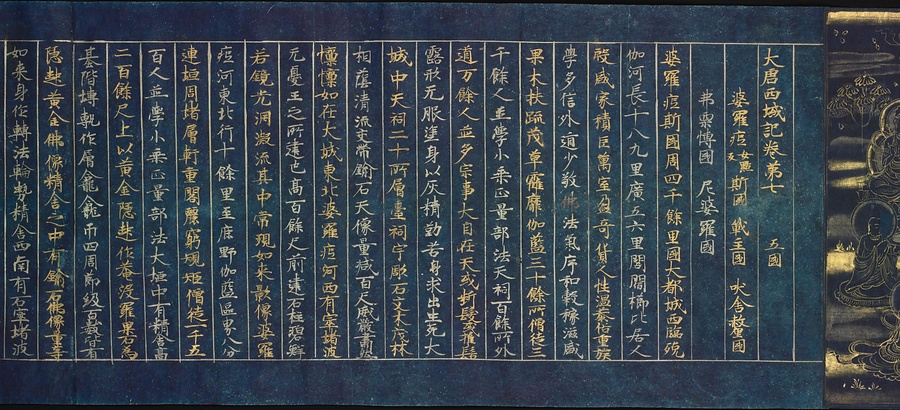 大唐西域記卷第七　五國
婆羅痆女黠反斯國　戰主國　吠舍釐國
弗栗恃國　尼婆羅國
婆羅痆斯國周四千餘里國大都城西臨殑
伽河長十八九里廣五六里閭閻櫛比居人
殷盛家積巨萬室盈奇貨人性溫恭俗重強
學多信外道少敬佛法氣序和穀稼滋盛
果木扶疏茂草靃靡伽藍三十餘所僧徒三
千餘人並學小乘正量部法天祠百餘所外
道万餘人並多宗事大自在天或断髮或椎髻
露形无服塗身以灰精勤苦身求出生死大
城中天祠二十所層臺祠宇彫石文木茂林
相蔭清流交帶鍮石天像量減百尺威嚴肅然
懍懍如在大城東北婆羅痆河西有窣堵波
元憂王之所建也高百餘尺前建石柱碧鮮
若鏡光润凝流其中常現如来影像婆羅
痆河東北行十餘里至鹿野伽藍區界八分
連垣周堵層軒重閣麗窮規矩僧徒一千五
百人並學小乘正量部法大垣中有精舍高
二百餘尺上以黄金隱起作菴沒羅果石為
基階塼甎作層龕龕帀四周節級百數皆有
隱起黄金佛像精舍之中有鍮石佛像量等
如来身作轉法輪勢精舍西南有石窣堵波